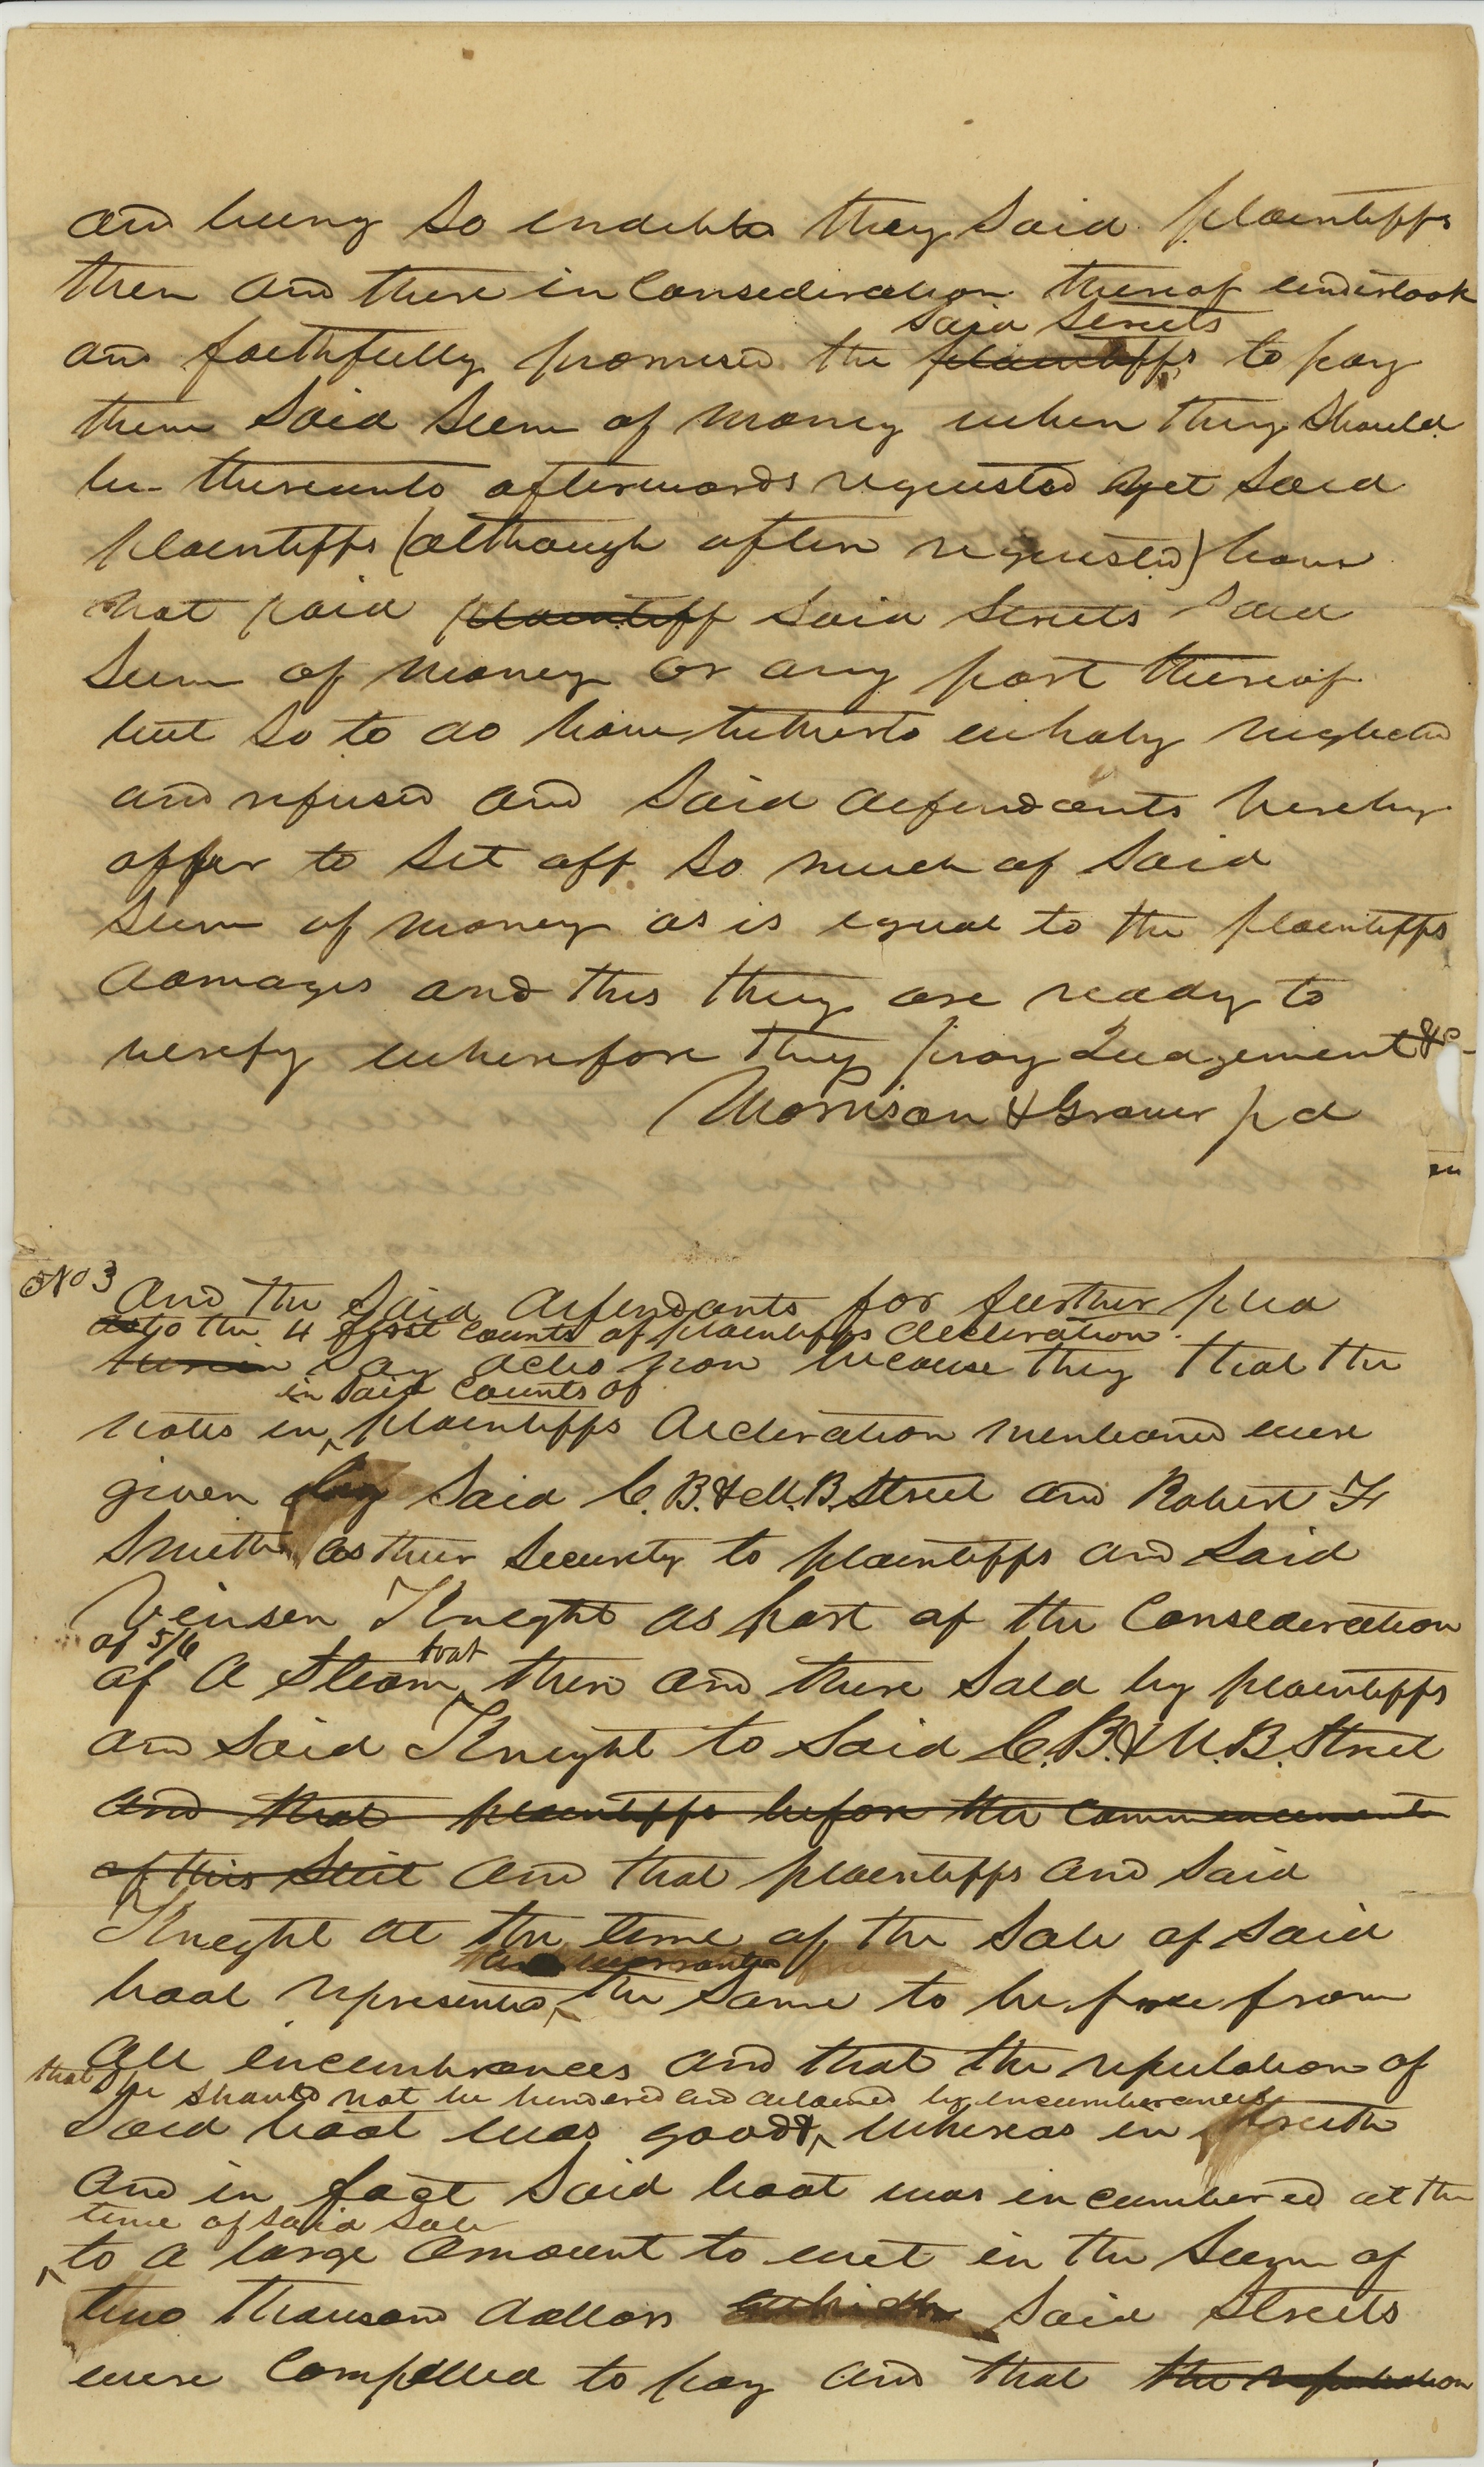 and being so indebted they said plaintiffs
then and there in Consideration thereof undertook
said Streets
and faithfully promised the plaintiffs to pay
them said sum of money when they should
be thereunto afterwards requested yet said
plaintiffs (although often requested) have
not paid plaintiff said Streets said
sum of money or any part thereof
but so to do have hitherto wholy neglected
and refused and said defendants hereby
offer to set off so much of said
sum of money as is equal to the plaintiffs
damages and this they are ready to
verify wherefore they pray Judgement &c
Morrison & Grover p d
No 3
And the said defendants for further plea
as to the 4 first counts of plaintiffs decleration
herein say actio non because they that the
in said Counts of
notes in plaintiffs decleration mentioned were
given by said C. B. & M. B. Street and Robert F
Smith as their Security to plaintiffs and said
Vinsen Knight as part of the Consideration
of 5/6
boat
of a Steam then and there sold by plaintiffs
and said Knight to said C. B. & M. B. Street
and that plaintiffs before the commencement
of this Suit and that plaintiffs and said
Knight at the time of the sale of said
and warranted
boat represented the same to be free from
all incumbrances and that the reputation of
that he should not be hindered and delained by incumberances
said boat was good & whereas in truth
and in fact said boat was incumbered at the
time of said sale
to a large amount to wit in the sum of
two thousand dollars which said Streets
were Compelled to pay and that the reputation